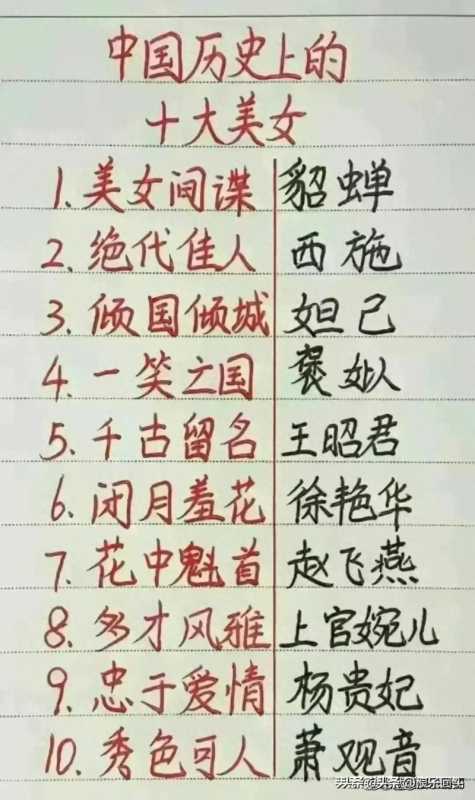 中国历史上的
十大美女
1. 美女间谍 貂蝉
2. 绝代佳人 西施
3. 倾国倾城 妲己
4. 一笑之国 褒姒
5. 千古留名 王昭君
6. 闭月羞花 徐艳华
7. 花中魁首 赵飞燕
8. 多才风雅 上官婉儿
9. 忠于爱情 杨贵妃
10. 秀色可人 萧观音